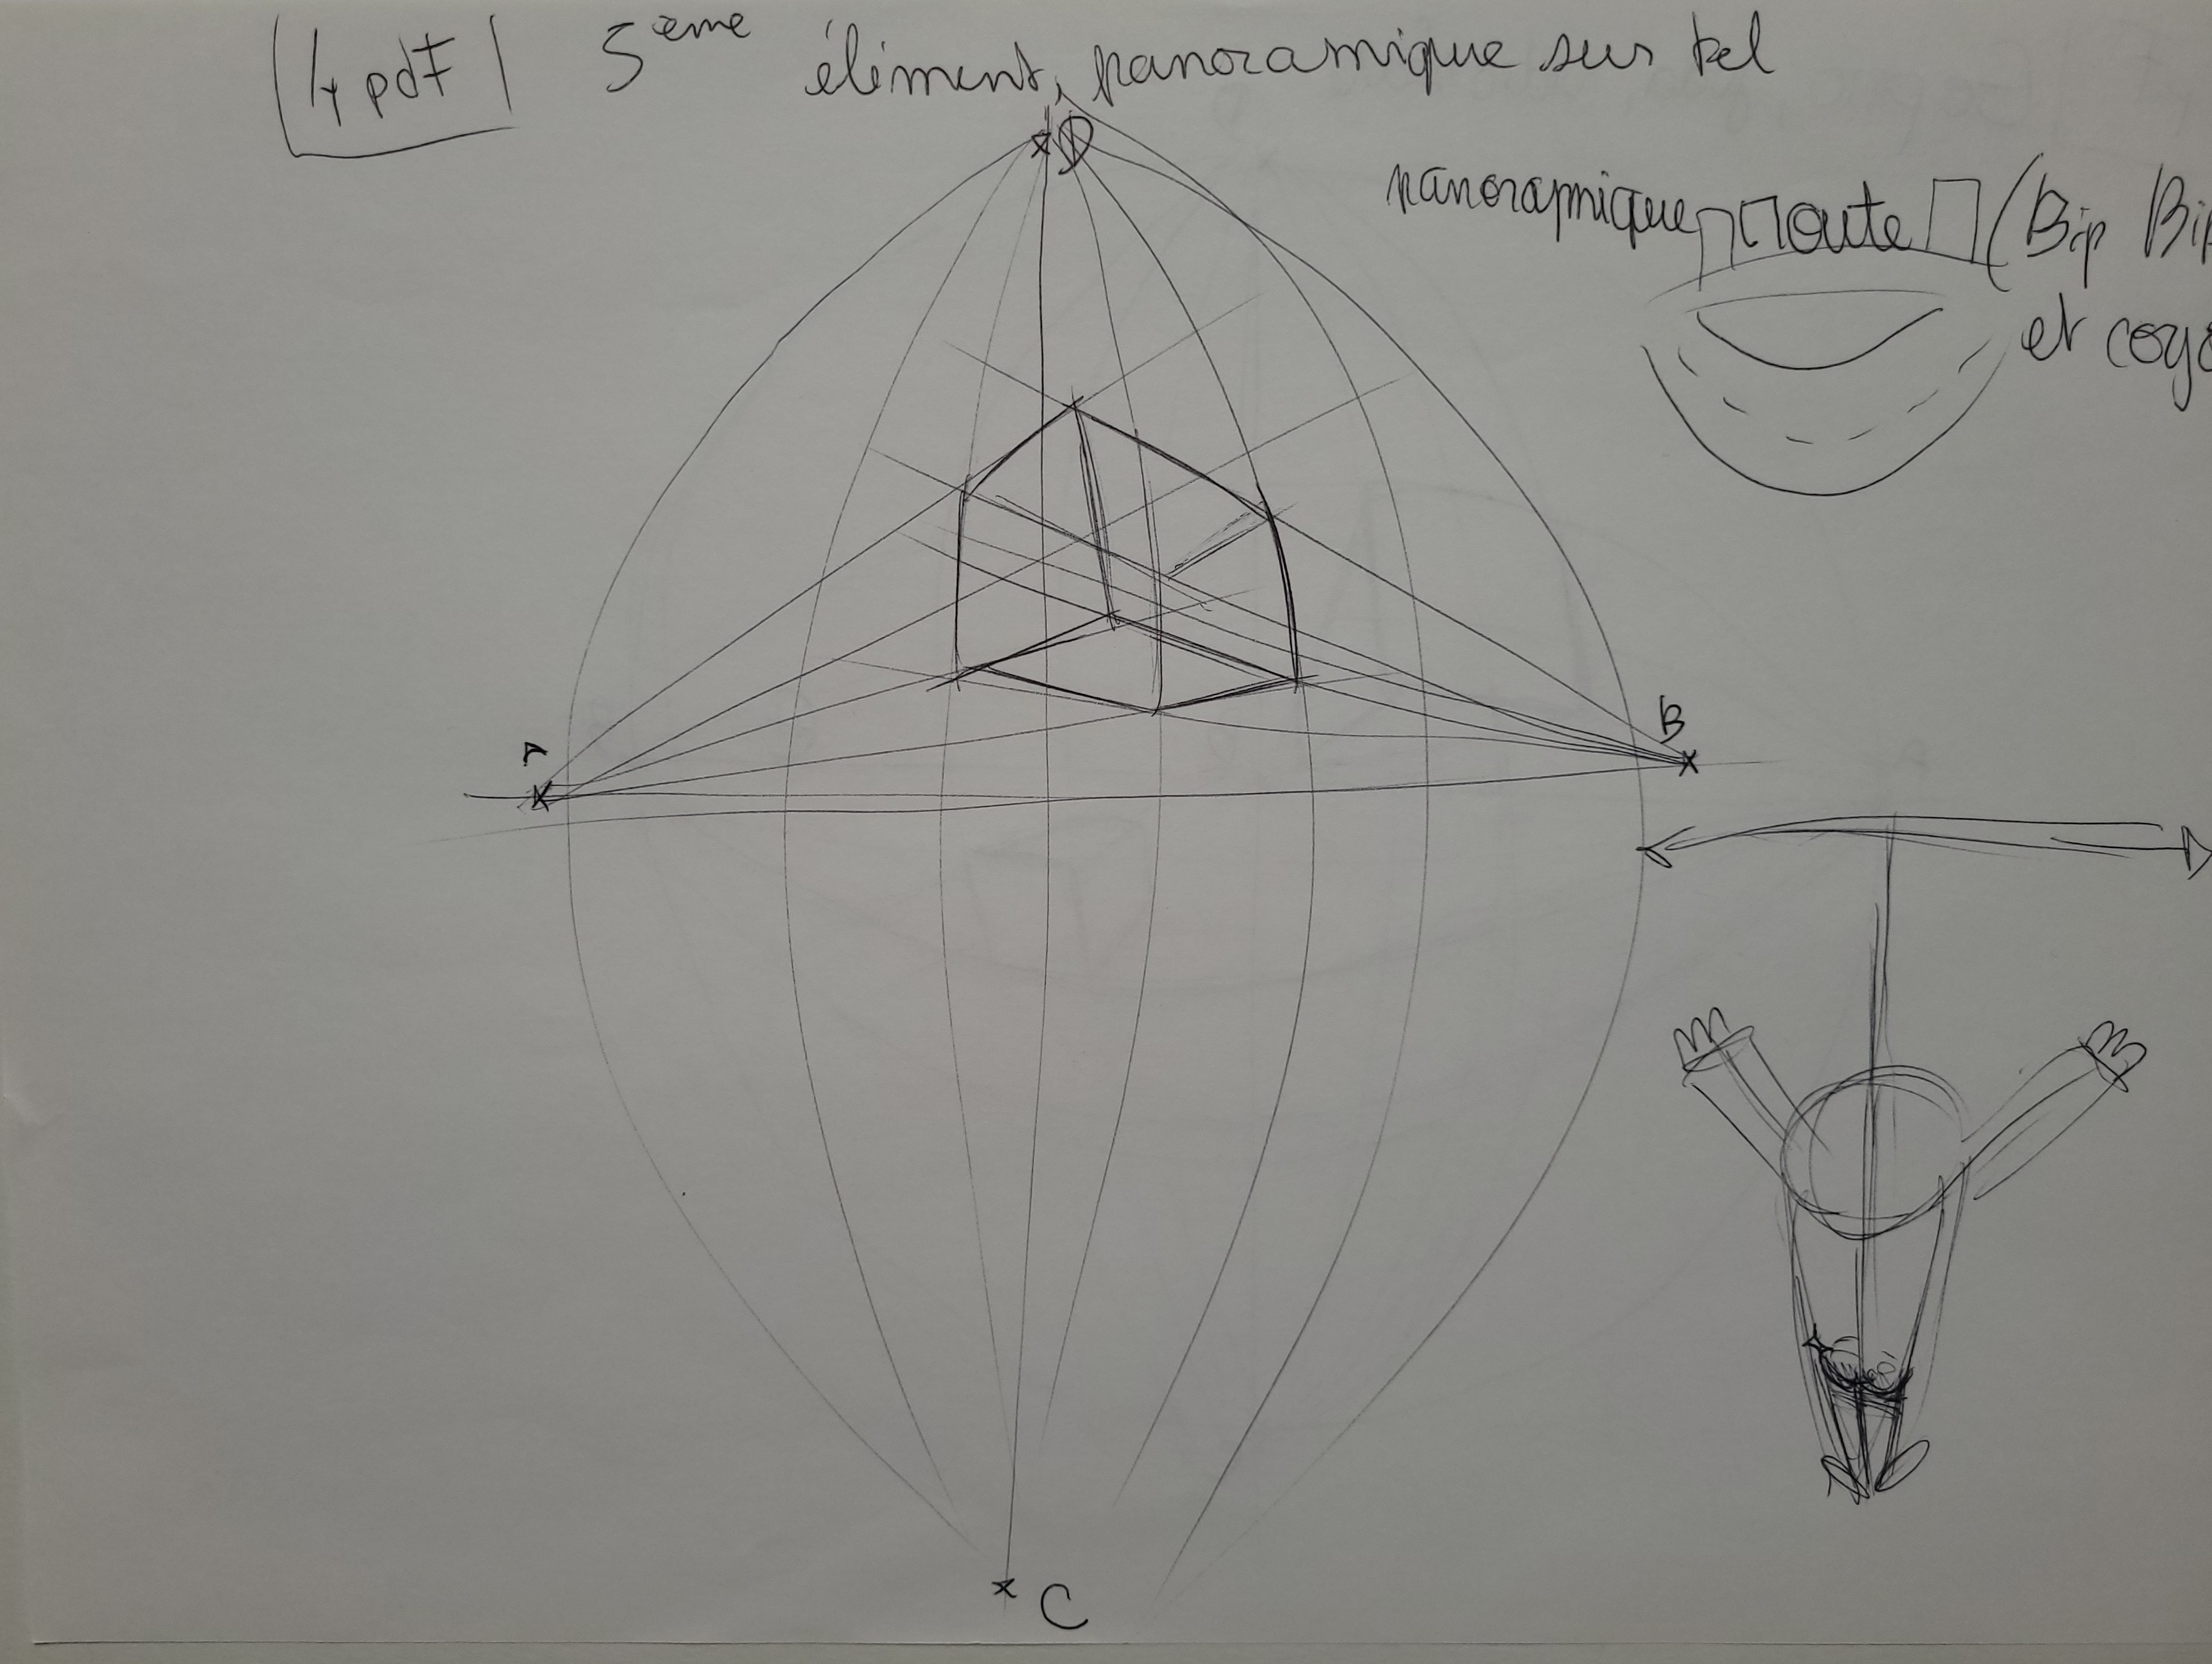 4 pdf
5ème élément, panoramique sur tel
D
panoramique route (Bip Bip
et coyo
A
B
C